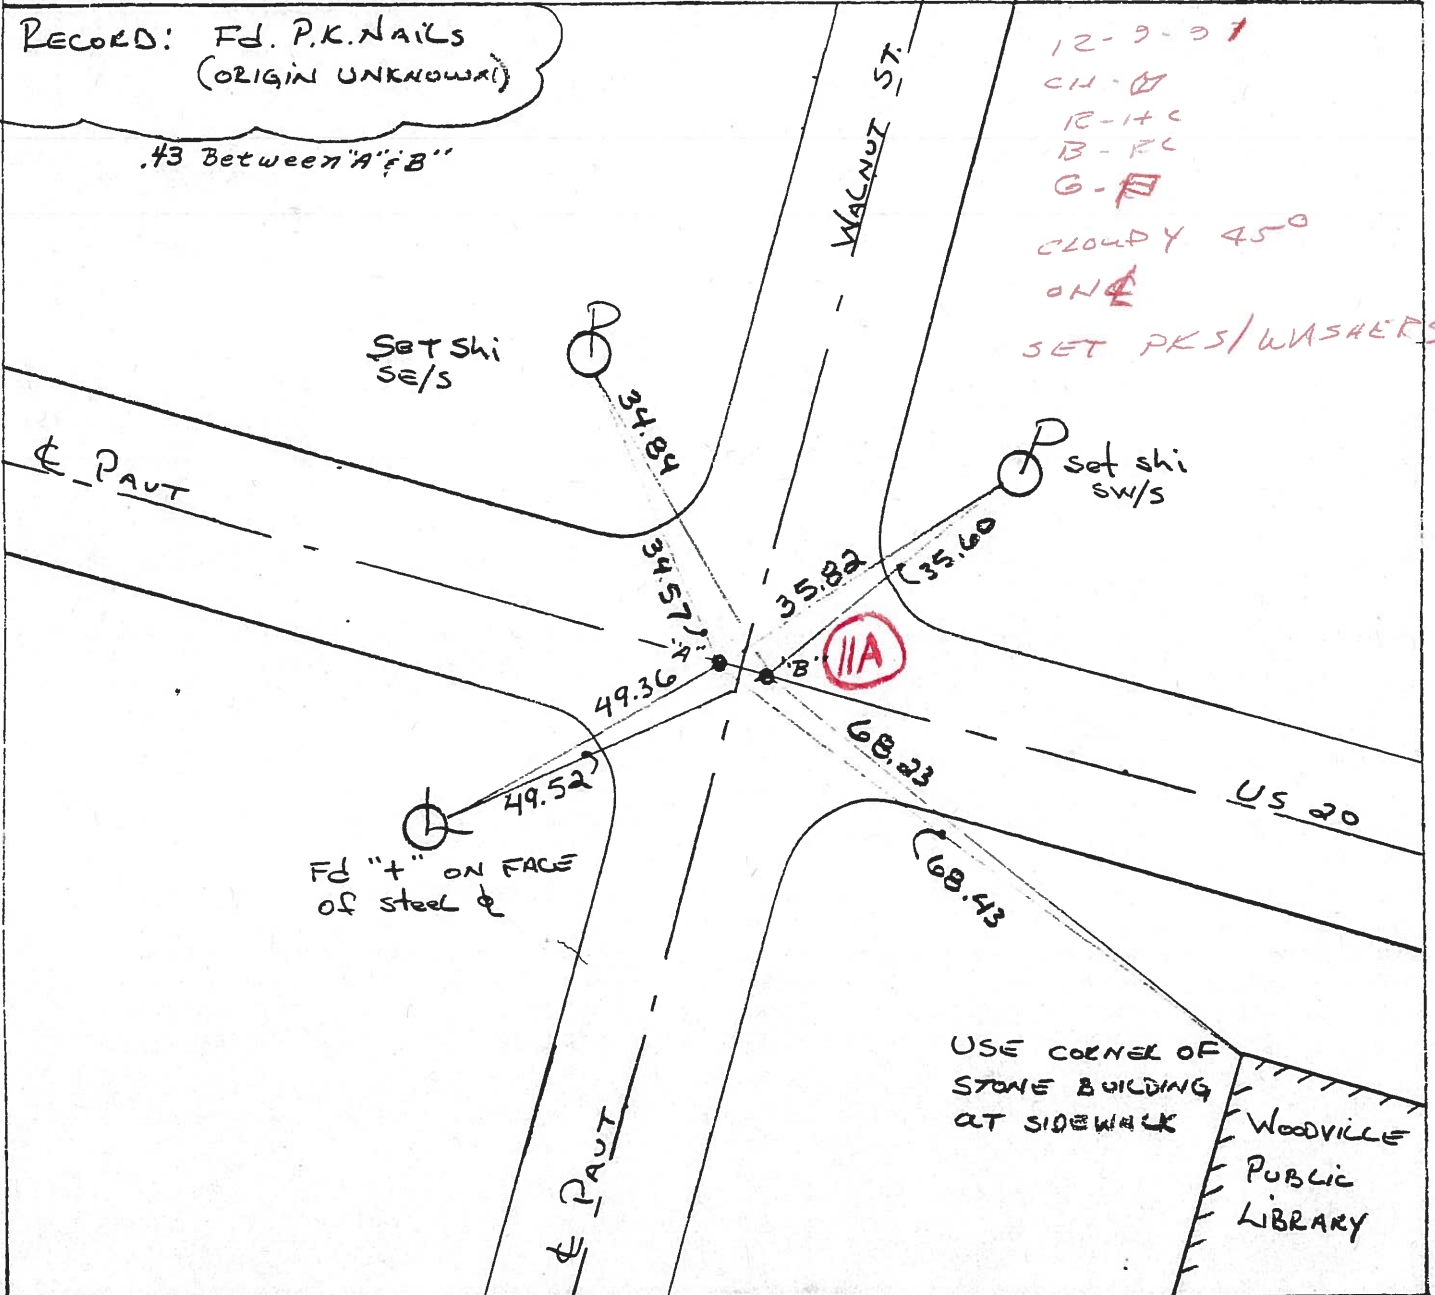 RECORD: Fd. P.K. NAILS
(ORIGIN UNKNOWN)
.43 Between "A" & "B"
WALNUT ST.
12-9-97
CH -
R - HC
B -
G -
CLOUDY 45°
ON ℄
SET PKS/WASHERS
Set Shi
SE/S
34.84
℄ PAUT
set shi
SW/S
34.57
35.82
35.60
"A"
"B"
11A
49.36
49.52
68.23
68.43
US 20
Fd "+" ON FACE
of steel
USE CORNER OF
STONE BUILDING
AT SIDEWALK
℄ PAUT
WOODVILLE
PUBLIC
LIBRARY